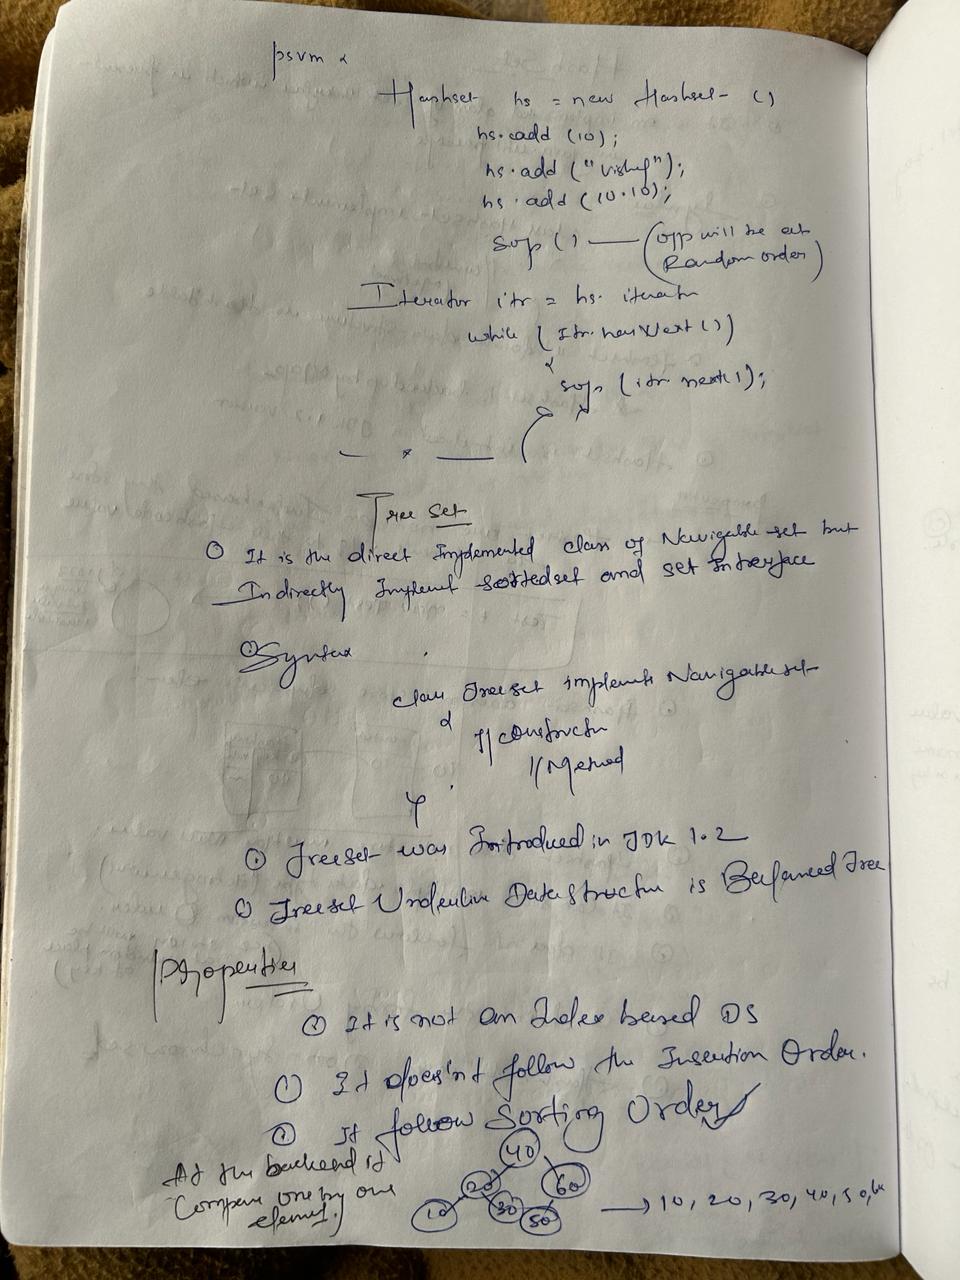 psvm {
Hashset hs = new Hashset ()
hs.add (10);
hs.add ("
hs.add (10.10);
Sop () — (o/p will be at
Random order)
Iterator itr = hs. iterator
while (Itr.hasNext ())
{
sop (itr. next());
}
— x —
Tree Set
It is the direct Implemented class of Navigable set but
Indirectly Implement sortedset and set Interface
Syntax
class Treeset implements Navigableset
{
// constructor
// Method
}
Treeset was Introduced in JDK 1.2
Treeset Underline Data structure is Balanced Tree
Properties
It is not an Index based DS
It does'nt follow the Insertion Order.
It follow Sorting Order
At the backend it
Compare one by one
element.)
40
20 60
10 30 50
→ 10, 20, 30, 40, 50, 60